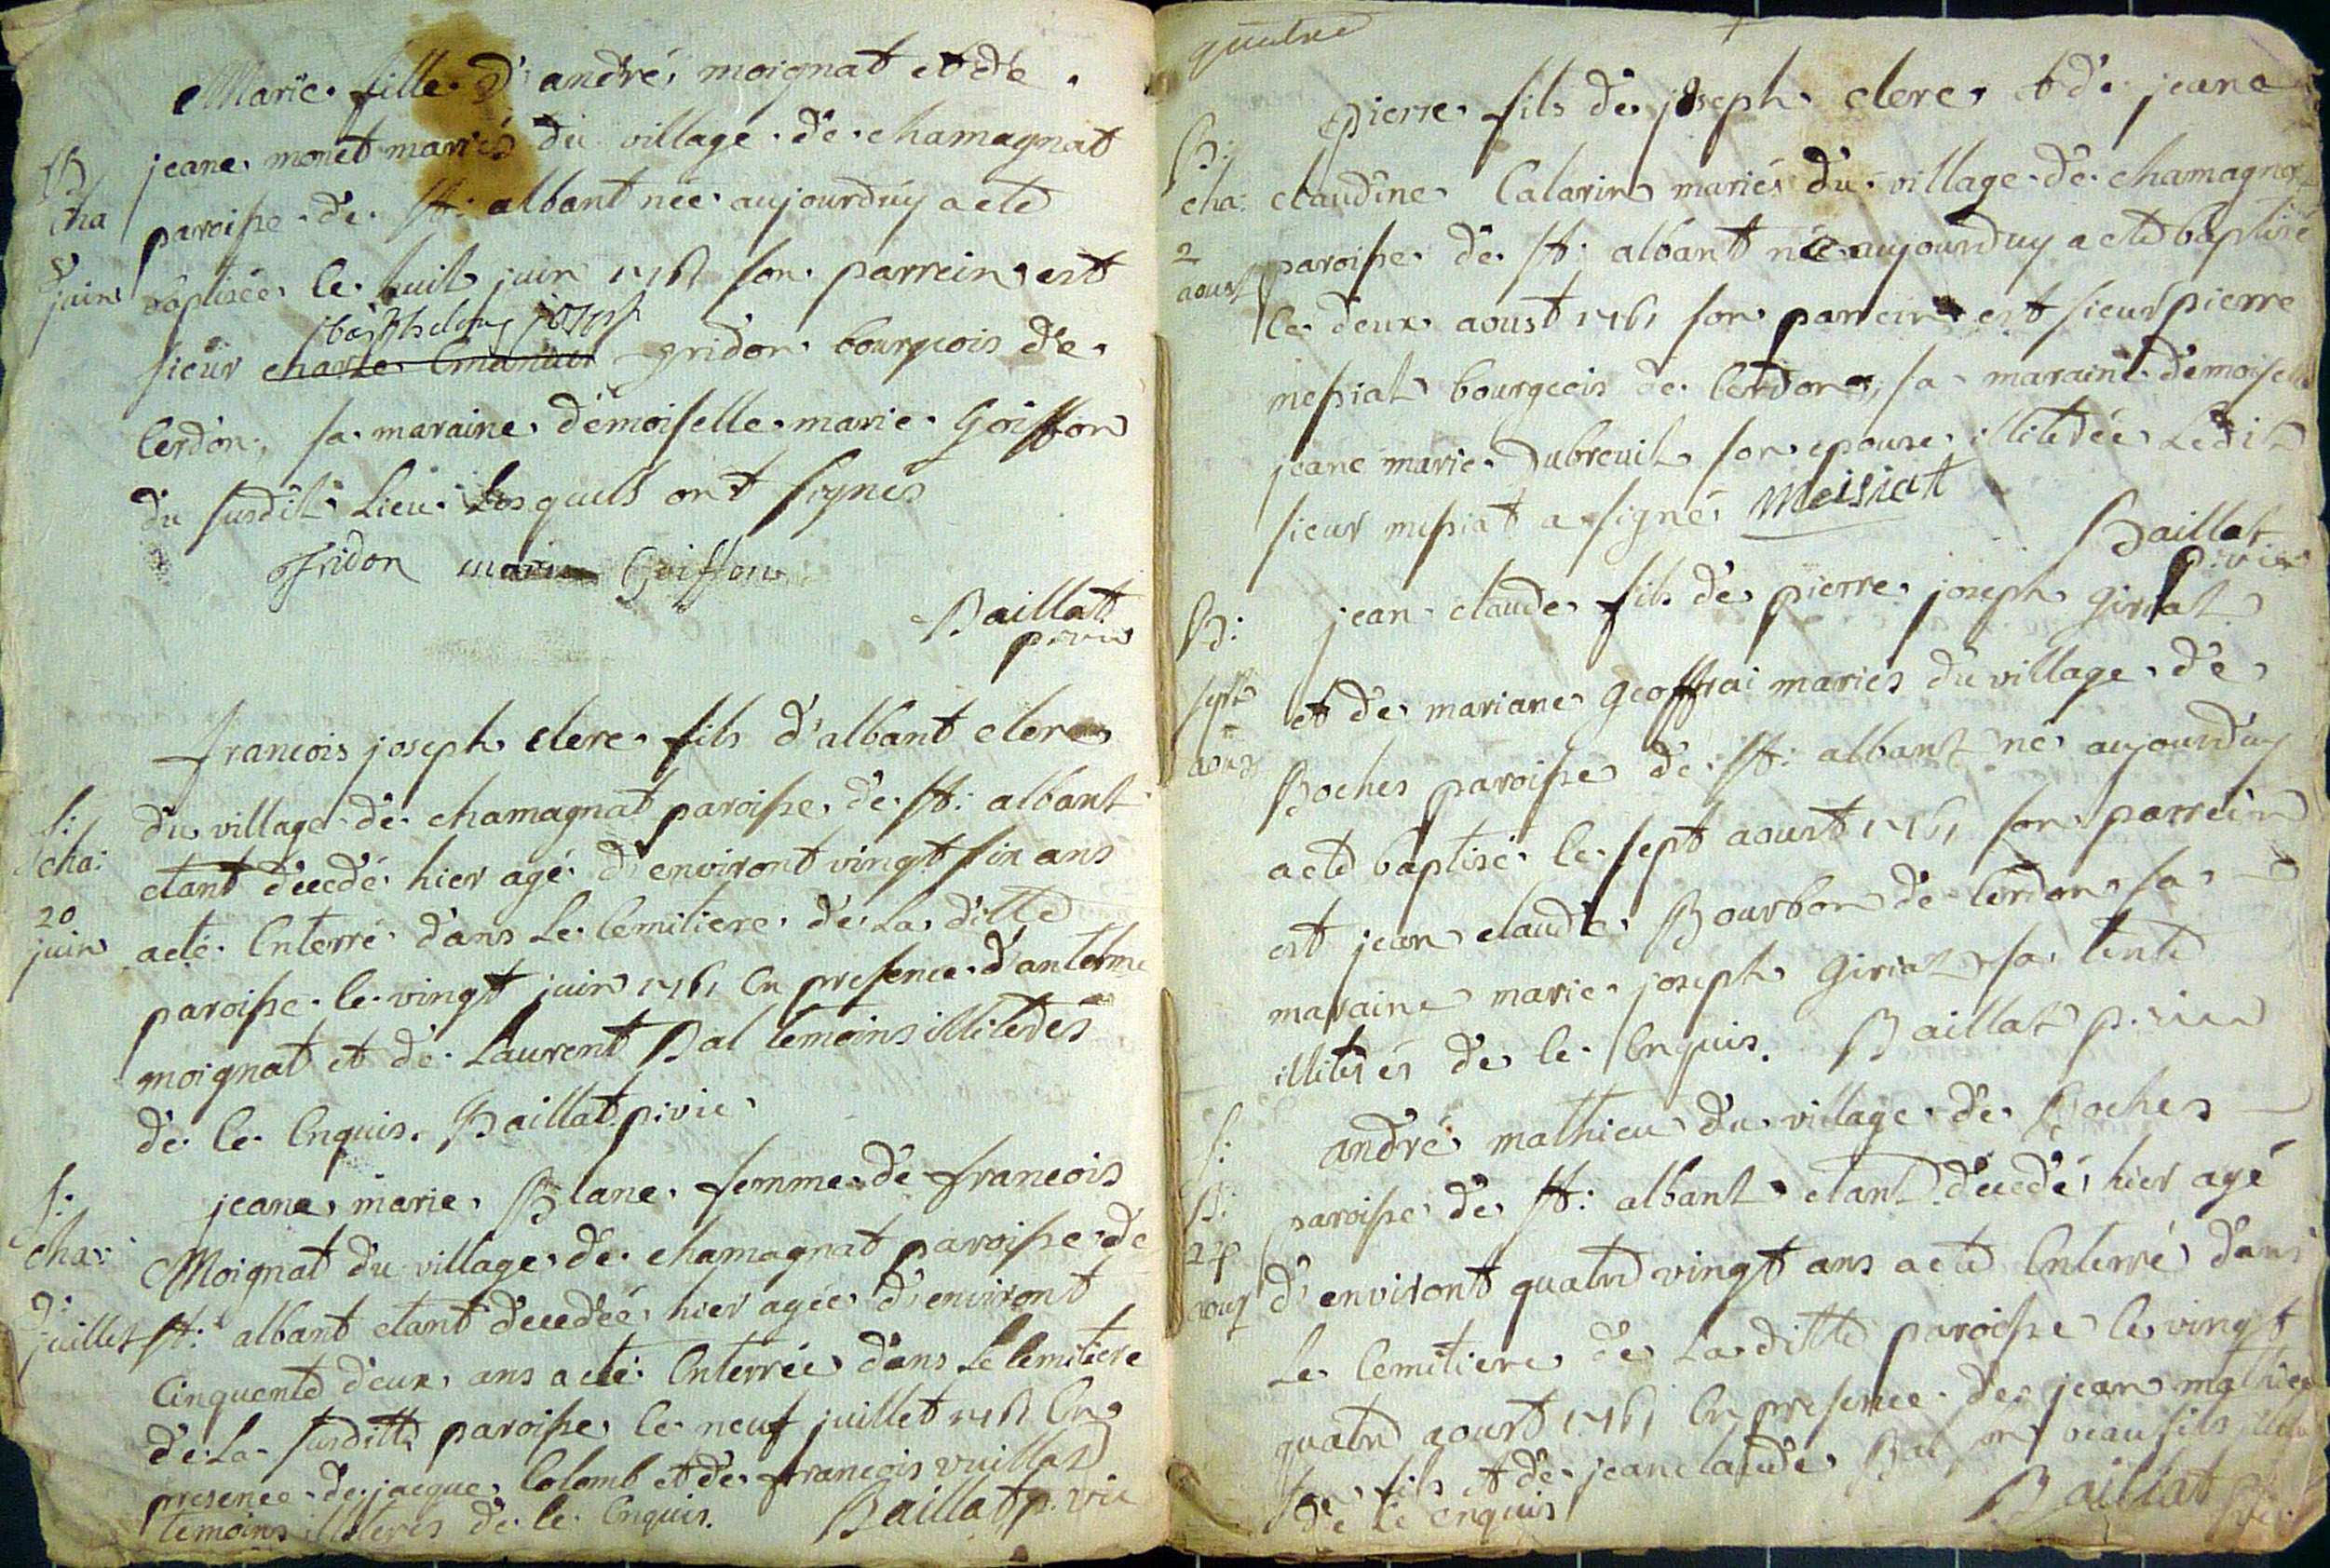 Marie fille d'andré moignat et de
jeane monet mariés du village de chamagnat
B
cha
paroisse de st: albant née aujourduy a eté
8
juin
baptisée le huit juin 1761 son parrein est
barthelemy joseph
sieur charle Emanuel gridon bourgeois de
Cerdon, sa maraine demoiselle marie Goiffon
du susdit Lieu Lesquels ont signés
Gridon marie Goiffon
Baillat
p. vic
francois joseph clerc fils d'albant clerc
S:
cha:
du village de chamagnat paroisse de st: albant
etant decedé hier agé d'environt vingt six ans
20
juin
a eté Enterré dans Le Cemitiere de La ditte
paroisse le vingt juin 1761 En presence d'antelme
moignat et de Laurent Bal temoins illiterés
de ce Enquis. Baillat p. vic
S:
cha:
jeane marie Blanc femme de francois
Moignat du village de chamagnat paroisse de
9:
juillet
st: albant etant decedée hier agée d'environt
Cinquente deux ans a eté Enterrée dans Le Cemitiere
de La susditte paroisse le neuf juillet 1761 En
presence de jacque Colomb et de francois vuillat
temoins illiterés de ce Enquis. Baillat p. vic
quatre
pierre fils de joseph clerc et de jeane
B:
cha:
claudine Calarin mariés du village de chamagnat
2
aoust
paroisse de st: albant né aujourduy a eté baptisé
le deux aoust 1761 son parrein est sieur pierre
messiat bourgeois de Cerdon, sa maraine demoiselle
jeane marie Dubreuil son epouse illiterée Ledit
sieur messiat a signé Meisiat
Baillat
p. vic
B:
jean claude fils de pierre joseph Giriat
sept
aoust
et de mariane Geoffrai mariés du village de
Boches paroisse de st: albant né aujourduy
a eté baptisé le sept aoust 1761 son parrein
est jean claude Bourbon de Cerdon sa
maraine marie joseph Giriat sa tente
illiterés de ce Enquis. Baillat p. vic
S:
B:
andré mathieu du village de Boches
paroisse de st: albant etant decedé hier agé
24
aoust
d'environt quatre vingt ans a eté Enterré dans
Le Cemitiere de La ditte paroisse le vingt
quatre aoust 1761 En presence de jean mathieu
son fils et de jean claude Bal son beau fils
de ce enquis
Baillat
p. vic